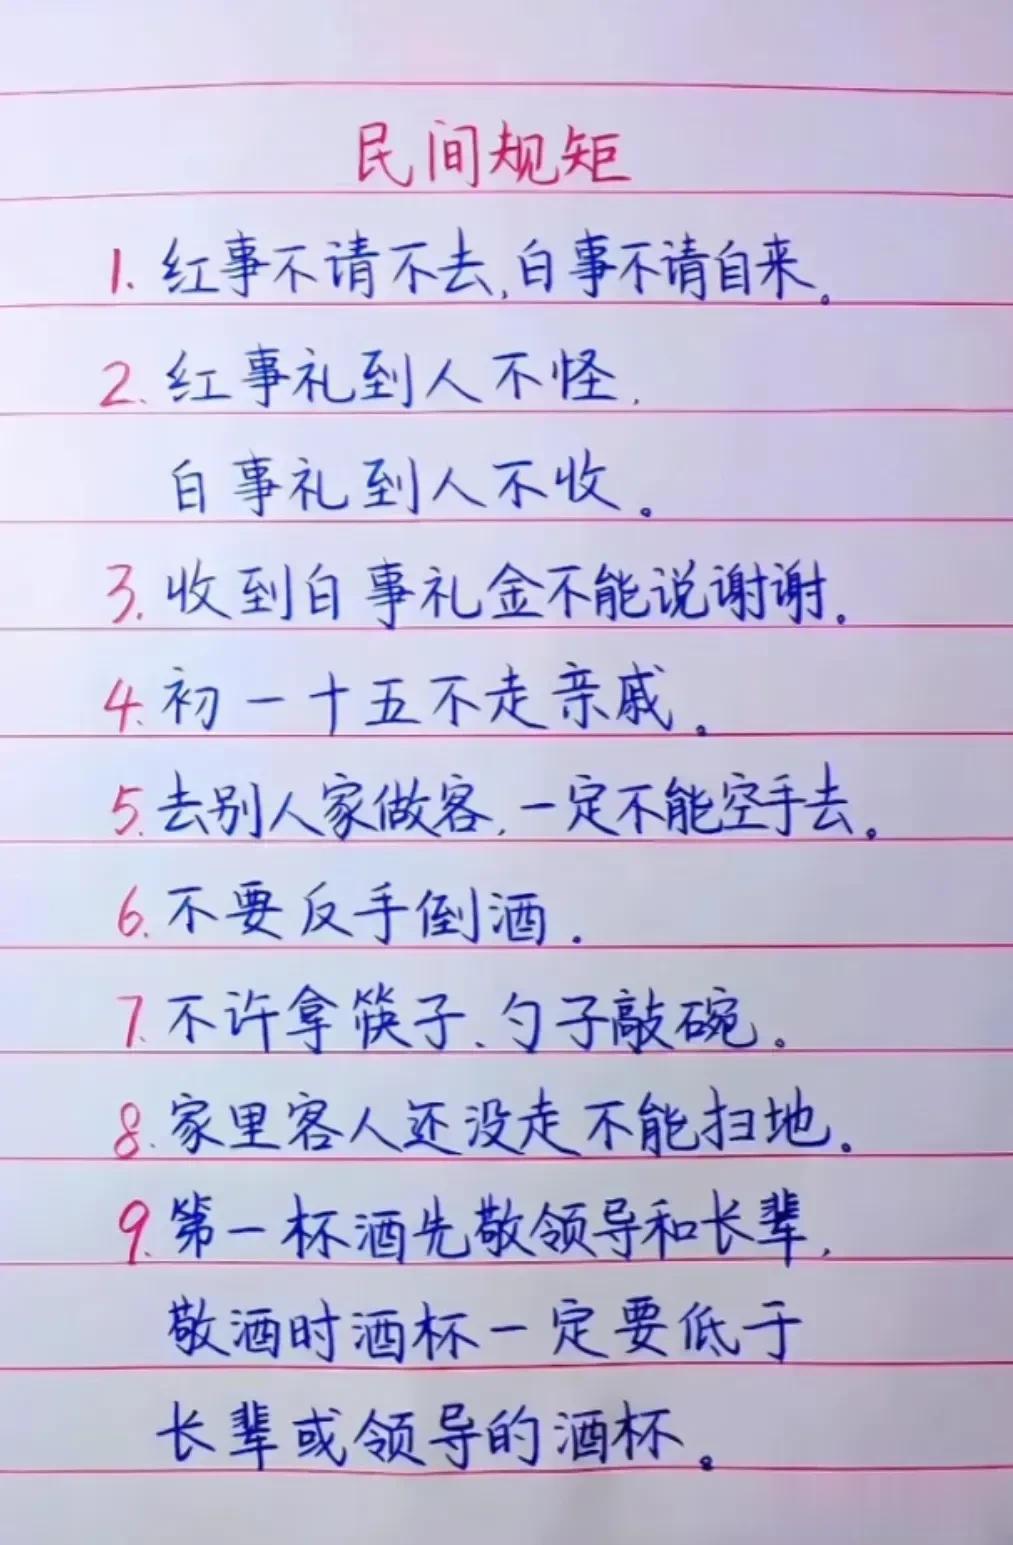 民间规矩
1. 红事不请不去,白事不请自来。
2. 红事礼到人不怪,
白事礼到人不收。
3. 收到白事礼金不能说谢谢。
4. 初一十五不走亲戚。
5. 去别人家做客,一定不能空手去。
6. 不要反手倒酒.
7. 不许拿筷子、勺子敲碗。
8. 家里客人还没走不能扫地。
9. 第一杯酒先敬领导和长辈,
敬酒时酒杯一定要低于
长辈或领导的酒杯。